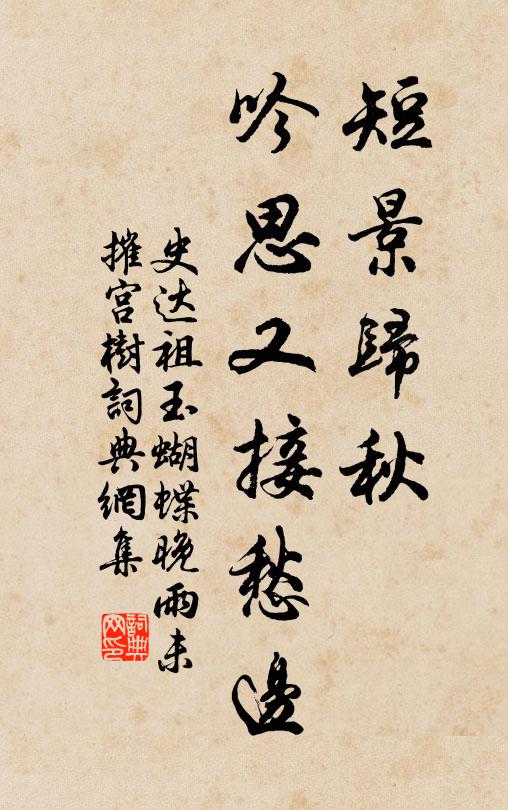 短景歸秋
吟思又接愁邊
史达祖玉蝴蝶晚雨未
摧宫樹詞典網集
詞典网印